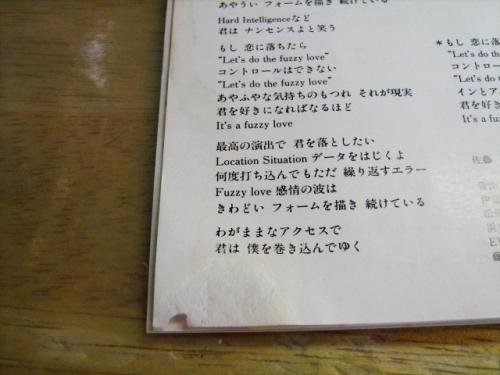 あやうい フォームを描き 続けている
Hard Intelligenceなど
君は ナンセンスよと笑う
もし 恋に落ちたら
"Let's do the fuzzy love"
コントロールはできない
"Let's do the fuzzy love"
あやふやな気持ちのもつれ それが現実
君を好きになればなるほど
It's a fuzzy love
最高の演出で 君を落としたい
Location Situation データをはじくよ
何度打ち込んでもただ 繰り返すエラー
Fuzzy love 感情の波は
きわどい フォームを描き 続けている
わがままなアクセスで
君は 僕を巻き込んでゆく
*もし 恋に落ち
"Let's do the
コントロー
"Let's do t
インとア
君を好き
It's a fu
佐藤